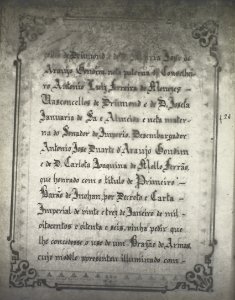 de Drumond e de D. Maria José de
Araujo Gondim, neta paterna do Conselhei-
ro, Antonio Luiz Ferreira de Menezes
Vasconcellos de Drumond e de D. Josefa
Januaria de Sá e Almeida e neta mater-
na do Senador do Imperio, Desembargador
Antonio José Duarte d'Araujo Gondim
e de D. Carlota Joaquina de Mello Ferrão,
que honrado com o titulo de Primeiro
Barão de Inohan, por Decreto e Carta
Imperial de vinte e trez de Janeiro de mil
oitocentos e oitenta e seis, vinha pedir que
lhe concedesse o uso de um Brazão de Armas
cujo modelo apresentou illuminado com